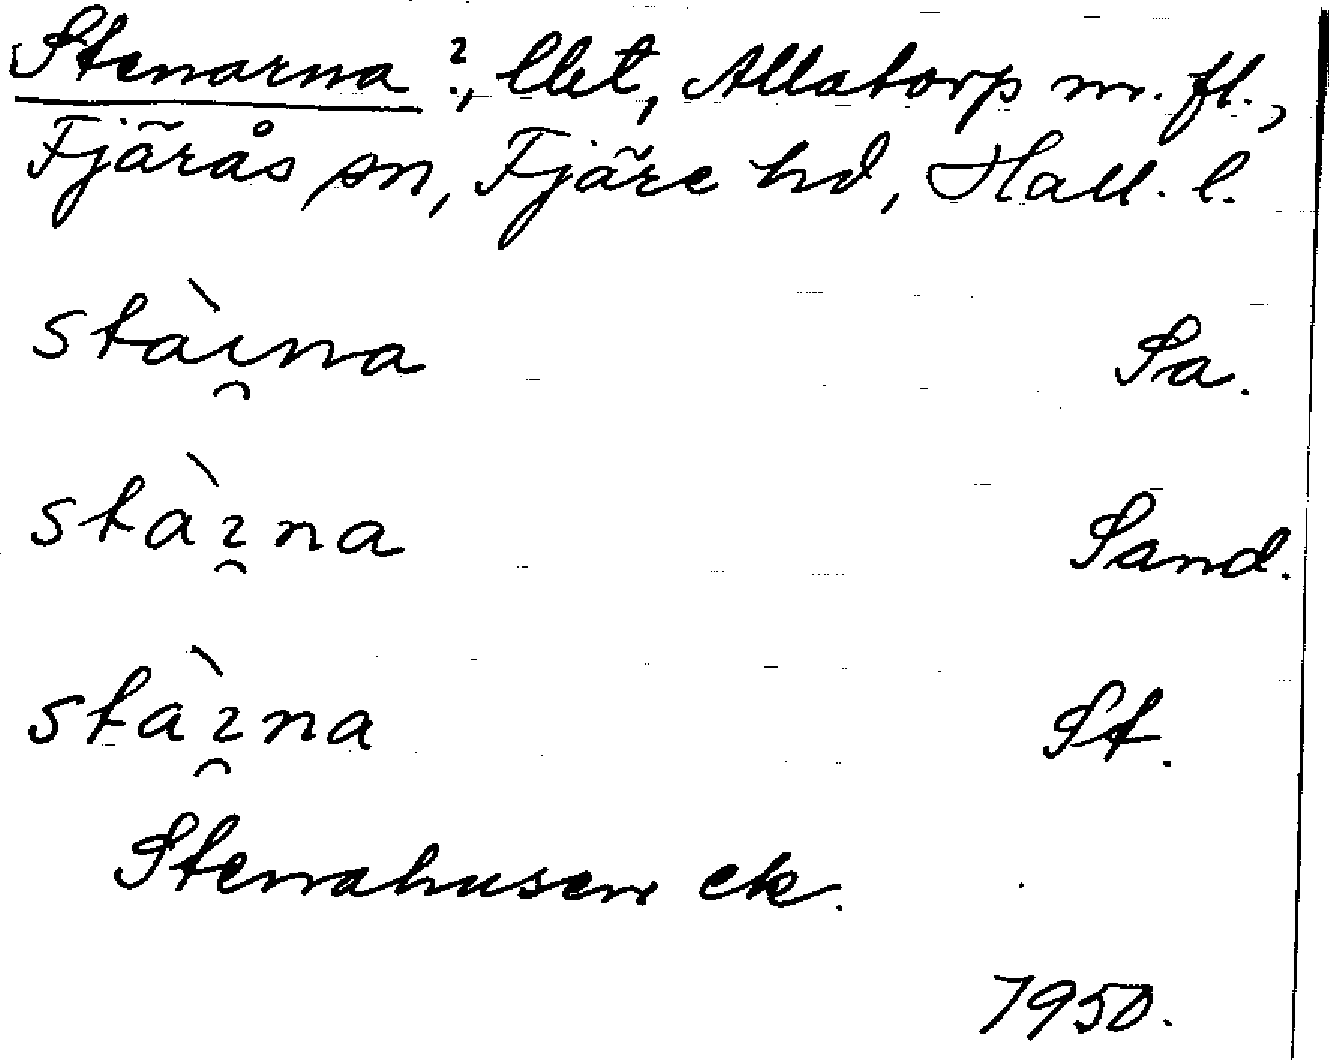 Stenarna ?, llet, Allatorp m. fl.,
Fjärås sn, Fjäre hd, Hall. l.
stàɪ̯na Sa.
stàɪ̯na Sand.
stàɪ̯na St.
Stenahusen ek.
1950.